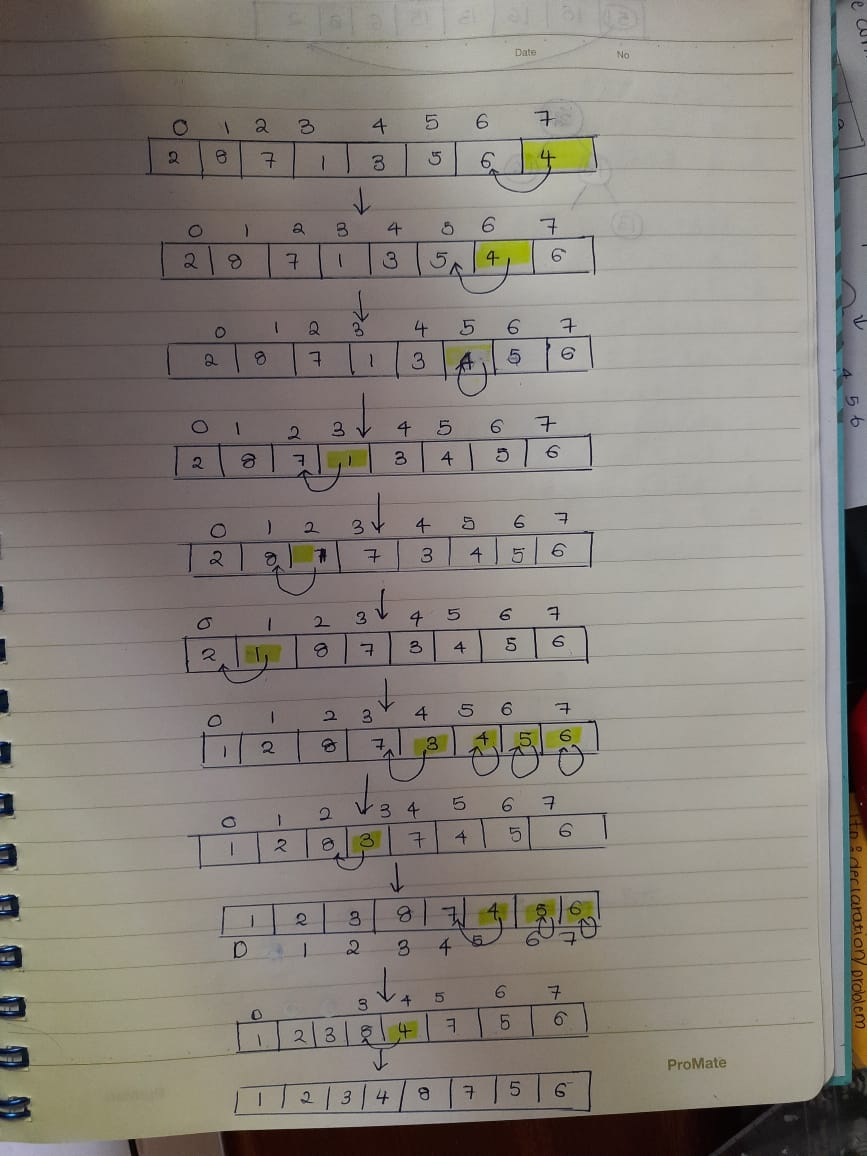 Date
No
0 1 2 3 4 5 6 7
2 8 7 1 3 5 6 4
0 1 2 3 4 5 6 7
2 8 7 1 3 5 4 6
0 1 2 3 4 5 6 7
2 8 7 1 3 4 5 6
0 1 2 3 4 5 6 7
2 8 7 1 3 4 5 6
0 1 2 3 4 5 6 7
2 8 1 7 3 4 5 6
0 1 2 3 4 5 6 7
2 1 8 7 3 4 5 6
0 1 2 3 4 5 6 7
1 2 8 7 3 4 5 6
0 1 2 3 4 5 6 7
1 2 8 3 7 4 5 6
1 2 3 8 7 4 5 6
0 1 2 3 4 5 6 7
0 3 4 5 6 7
1 2 3 8 4 7 5 6
1 2 3 4 8 7 5 6
ProMate
4 5 6
declaration/problem